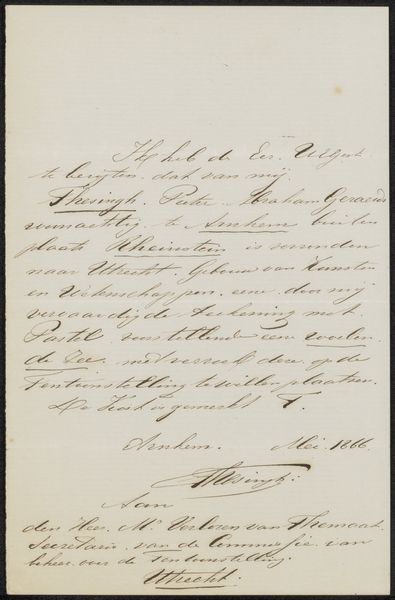 Ik heb de Eer. UEgest.
te berigten dat van mij
Thesingh. Pieter Abraham Gerardus
woonachtig te Arnhem buiten
plaats Rheinstein is verzonden
naar Utrecht. Gebouw van Kunsten
en Wetenschappen. eene door mij
vervaardigde teekening met
Pastel voorstellende een woelen
de Zee. met verzoek deze op de
Tentoonstelling te willen plaatsen.
De Kist is gemerkt T.
Arnhem. Mei 1866.
Thesingh.
Aan
den Heer. Mr. Verloren van Themaat.
Secretaris van de Commissie van
beheer over de Tentoonstelling.
Utrecht.